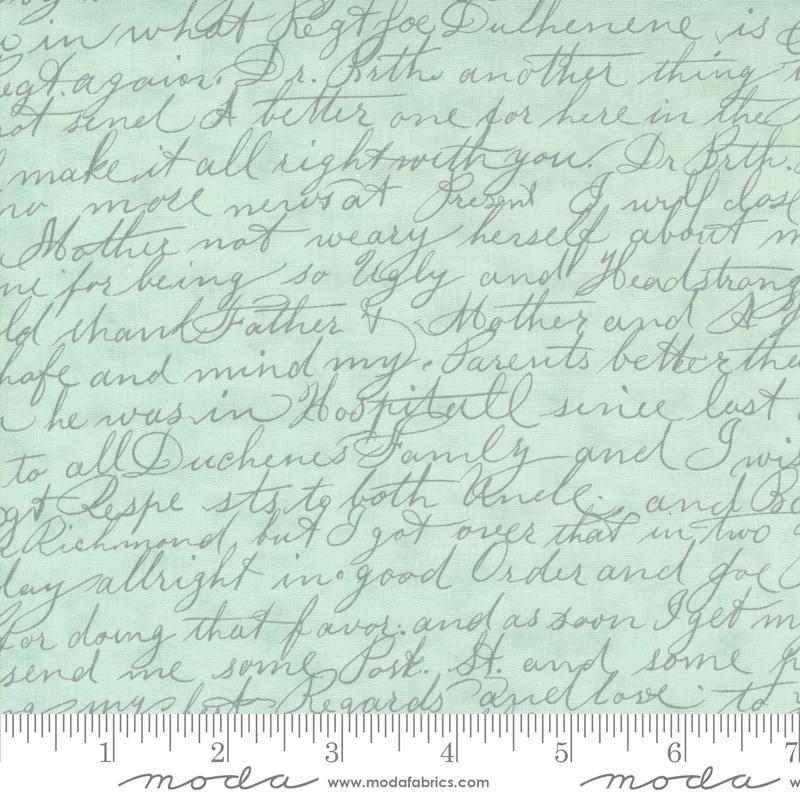 in what Regt Joe Duchenene is
egt. again. Dr. Brth. another thing
not send A better one for here in the
make it all right with you. Dr Brth.
no more news at Present I will close
Mother not weary herself about m
me for being so Ugly and Headstrong
ld thank Father & Mother and A
hafe and mind my Parents better tha
he was in Hospitall since last
to all Duchenes Family and I wis
gt Respe sts to both Uncle. and Bo
Richmond, but I got over that in two
day allright in good Order and Joe
for doing that favor. and as soon I get m
send me some Post. St. and some p
my best Regards and love to
1 2 3 4 5 6 7
moda www.modafabrics.com moda w